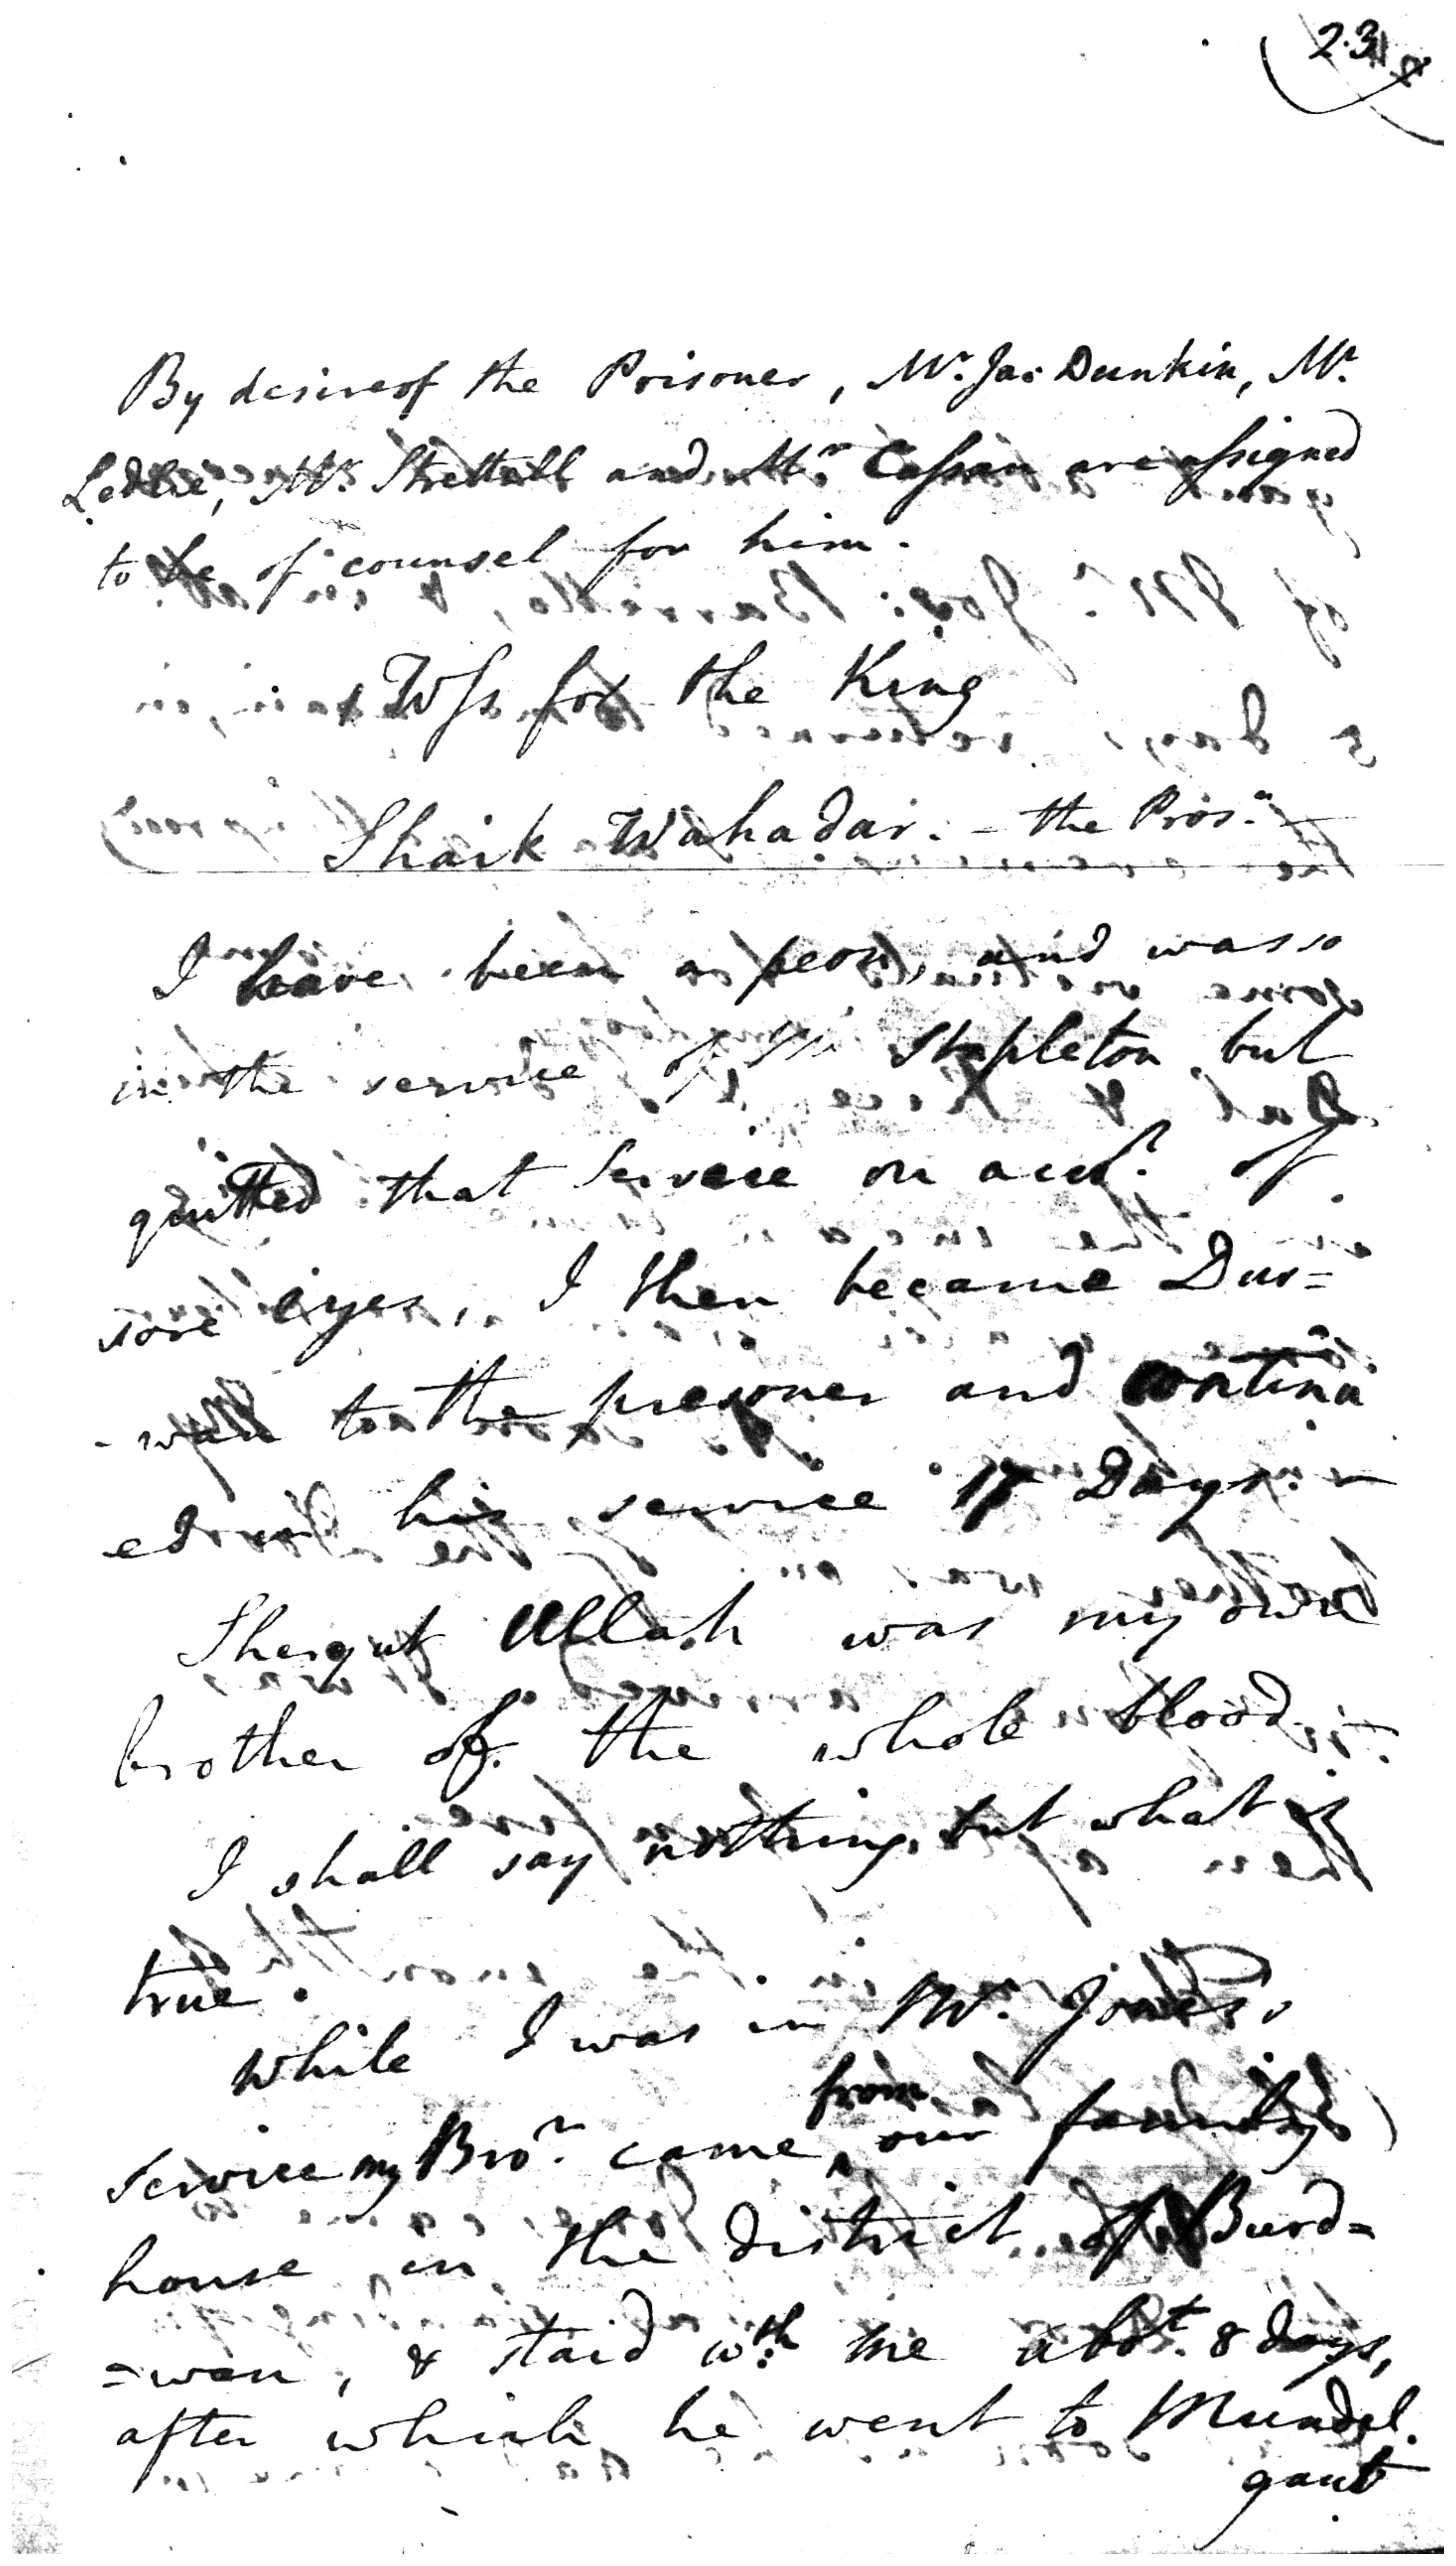 By desire of the Prisoner, Mr. Jas: Dunkin, Mr.
Ledlie, Mr. Strettell and Mr. Cassan are assigned
to be of counsel for him.
Wss for the King
Shaik Wahadar. - the Pros.n
I have been a peon, and was so
in the service of Mr Stapleton but
quitted that Service on acct. of
sore eyes, I then became Dur=
-wan to the prisoner and continu
ed in his service 17 Days. -
Ullah was my own
brother of the whole blood. -
I shall say nothing but what is
true.
While I was in Mr. Jones's
service my Bror. came from our family
house in the district of Burd=
=wan, & staid wth. me abot. 8 days,
after which he went to Mundel.
gaut